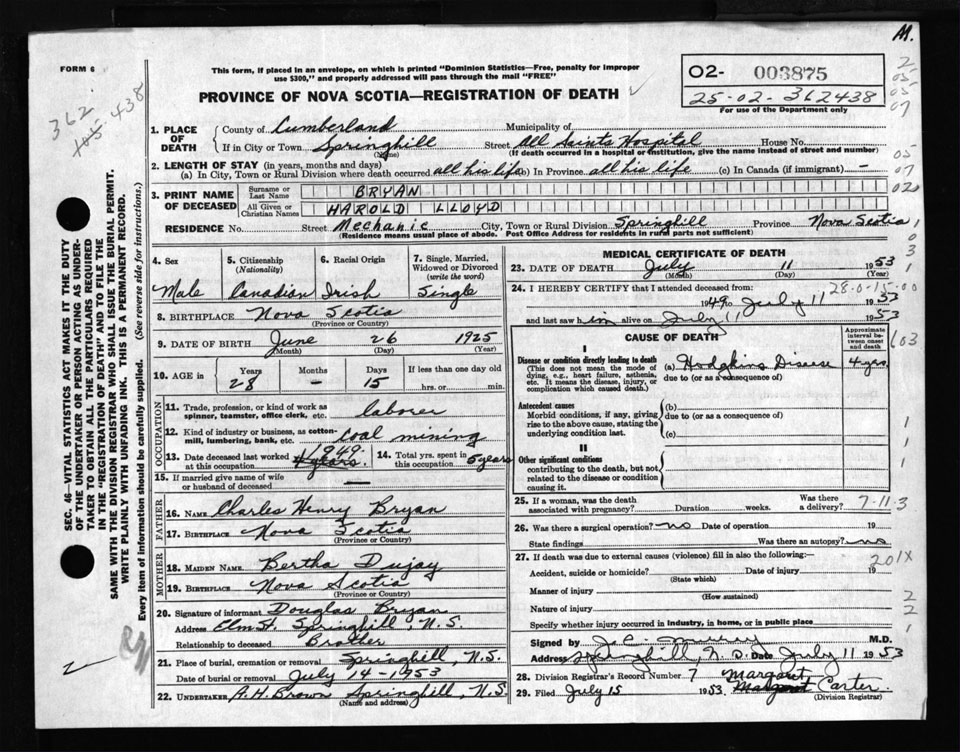 M.
FORM 6
This form, if placed in an envelope, on which is printed "Dominion Statistics—Free, penalty for improper
use $300," and properly addressed will pass through the mail "FREE"
PROVINCE OF NOVA SCOTIA—REGISTRATION OF DEATH
O2- 003875
25-02-362438
For use of the Department only
362
105 438
1. PLACE OF DEATH
County of Cumberland Municipality of
If in City or Town Springhill Street All Saints Hospital House No.
(Name) (If death occurred in a hospital or institution, give the name instead of street and number)
2. LENGTH OF STAY (in years, months and days)
(a) In City, Town or Rural Division where death occurred all his life (b) In Province all his life (c) In Canada (if immigrant) -
3. PRINT NAME OF DECEASED
Surname or Last Name BRYAN
All Given or Christian Names HAROLD LLOYD
RESIDENCE No. Street Mechanic City, Town or Rural Division Springhill Province Nova Scotia
(Residence means usual place of abode. Post Office Address for residents in rural parts not sufficient)
4. Sex Male
5. Citizenship (Nationality) Canadian
6. Racial Origin Irish
7. Single, Married, Widowed or Divorced (write the word) Single
8. BIRTHPLACE Nova Scotia
(Province or Country)
9. DATE OF BIRTH June 26 1925
(Month) (Day) (Year)
10. AGE in Years 28 Months - Days 15 If less than one day old
hrs. or min.
OCCUPATION
11. Trade, profession, or kind of work as spinner, teamster, office clerk, etc. laborer
12. Kind of industry or business, as cotton-mill, lumbering, bank, etc. coal mining
13. Date deceased last worked at this occupation 1949. 4 years.
14. Total yrs. spent in this occupation 5 years
15. If married give name of wife or husband of deceased —
FATHER
16. NAME Charles Henry Bryan
17. BIRTHPLACE Nova Scotia
(Province or Country)
MOTHER
18. MAIDEN NAME Bertha Dujay
19. BIRTHPLACE Nova Scotia
(Province or Country)
20. Signature of informant Douglas Bryan
Address Elm St. Springhill, N.S.
Relationship to deceased Brother
21. Place of burial, cremation or removal Springhill, N.S.
Date of burial or removal July 14-1953
22. UNDERTAKER A.H. Brown Springhill, N.S.
(Name and address)
MEDICAL CERTIFICATE OF DEATH
23. DATE OF DEATH July 11 1953
(Month) (Day) (Year)
24. I HEREBY CERTIFY that I attended deceased from: 28-0-15-00
1949 to July 11 1953
and last saw him alive on July 11 1953
CAUSE OF DEATH
Approximate interval between onset and death
I
Disease or condition directly leading to death
(This does not mean the mode of dying, e.g., heart failure, asthenia, etc. It means the disease, injury, or complication which caused death.)
(a) Hodgkins Disease 4 yrs.
due to (or as a consequence of)
Antecedent causes
Morbid conditions, if any, giving rise to the above cause, stating the underlying condition last.
(b)
due to (or as a consequence of)
(c)
II
Other significant conditions
contributing to the death, but not related to the disease or condition causing it.
25. If a woman, was the death associated with pregnancy? Duration weeks. Was there a delivery? 7-11-3
26. Was there a surgical operation? no Date of operation 19
State findings Was there an autopsy? no
27. If death was due to external causes (violence) fill in also the following: 201X
Accident, suicide or homicide? Date of injury 19
(State which)
Manner of injury
(How sustained)
Nature of injury
Specify whether injury occurred in industry, in home, or in public place
Signed by M.D.
Address Springhill, N.S. Date July 11 1953
28. Division Registrar's Record Number 7
29. Filed July 15 1953. Margaret Carter.
(Division Registrar)
SEC. 46—VITAL STATISTICS ACT MAKES IT THE DUTY
OF THE UNDERTAKER OR PERSON ACTING AS UNDER-
TAKER TO OBTAIN ALL THE PARTICULARS REQUIRED
IN THE "REGISTRATION OF DEATH" AND TO FILE THE
SAME WITH THE DIVISION REGISTRAR WHO SHALL ISSUE THE BURIAL PERMIT.
WRITE PLAINLY WITH UNFADING INK. THIS IS A PERMANENT RECORD.
Every item of information should be carefully supplied. (See reverse side for instructions.)